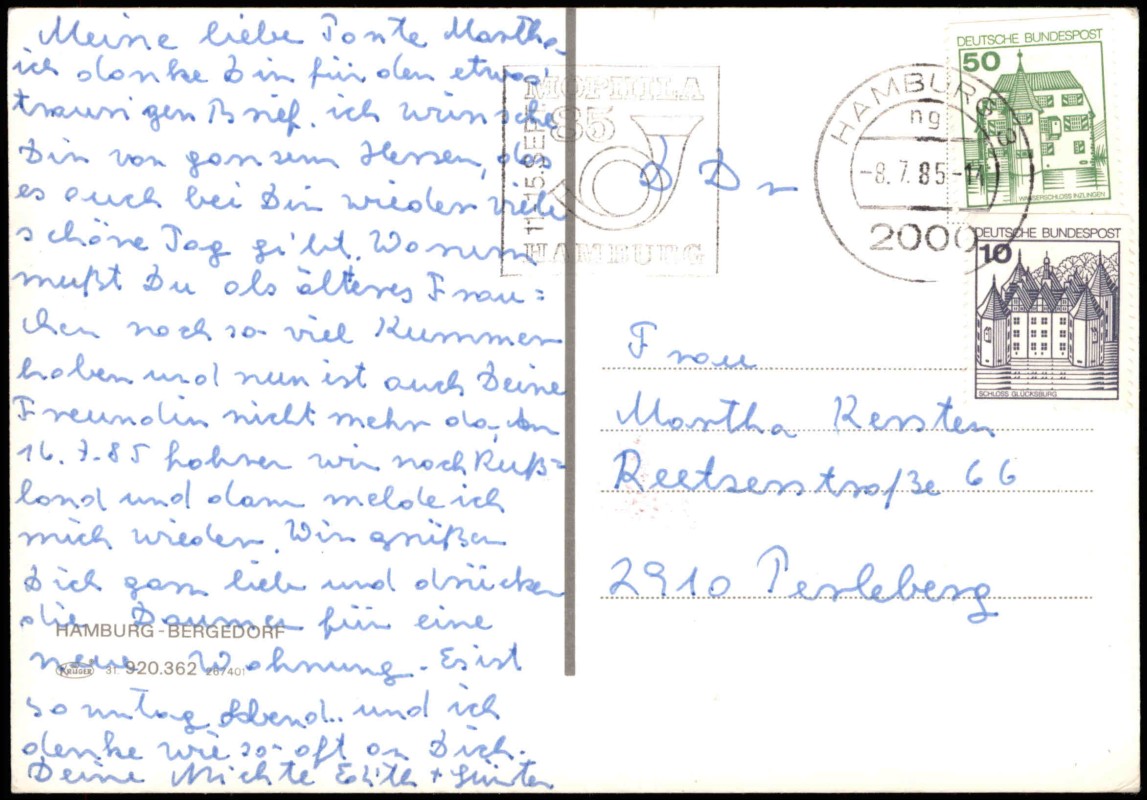 Meine liebe Tante Martha,
ich danke Dir für den etwas
traurigen Brief. ich wünsche
Dir von ganzem Herzen, das
es auch bei Dir wieder viele
schöne Tag gibt. Warum
mußt Du als älteres Frau=
chen noch so viel Kummer
haben und nun ist auch Deine
Freundin nicht mehr da, Am
16.7.85 fahren wir nach Ruß=
land und dann melde ich
mich wieder. Wir grüßen
Dich ganz lieb und drücken
die Daumen für eine
neue Wohnung. Es ist
sonntag Abend.. und ich
denke wie so oft an Dich.
Deine Nichte Edith + Günter
HAMBURG-BERGEDORF
KRÜGER 31. 920.362 267401
MOPHILA
85
11.-15.SEPT.
HAMBURG
HAMBURG
ng
-8.7.85-
2000
DEUTSCHE BUNDESPOST
50
WASSERSCHLOSS INZLINGEN
DEUTSCHE BUNDESPOST
10
SCHLOSS GLÜCKSBURG
DDR
Frau
Martha Kersten
Reetzerstraße 66
2910 Perleberg